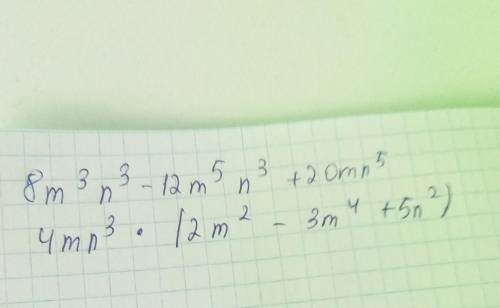 8m³n³ - 12m⁵n³ + 20mn⁵
4mn³ · (2m² - 3m⁴ + 5n²)